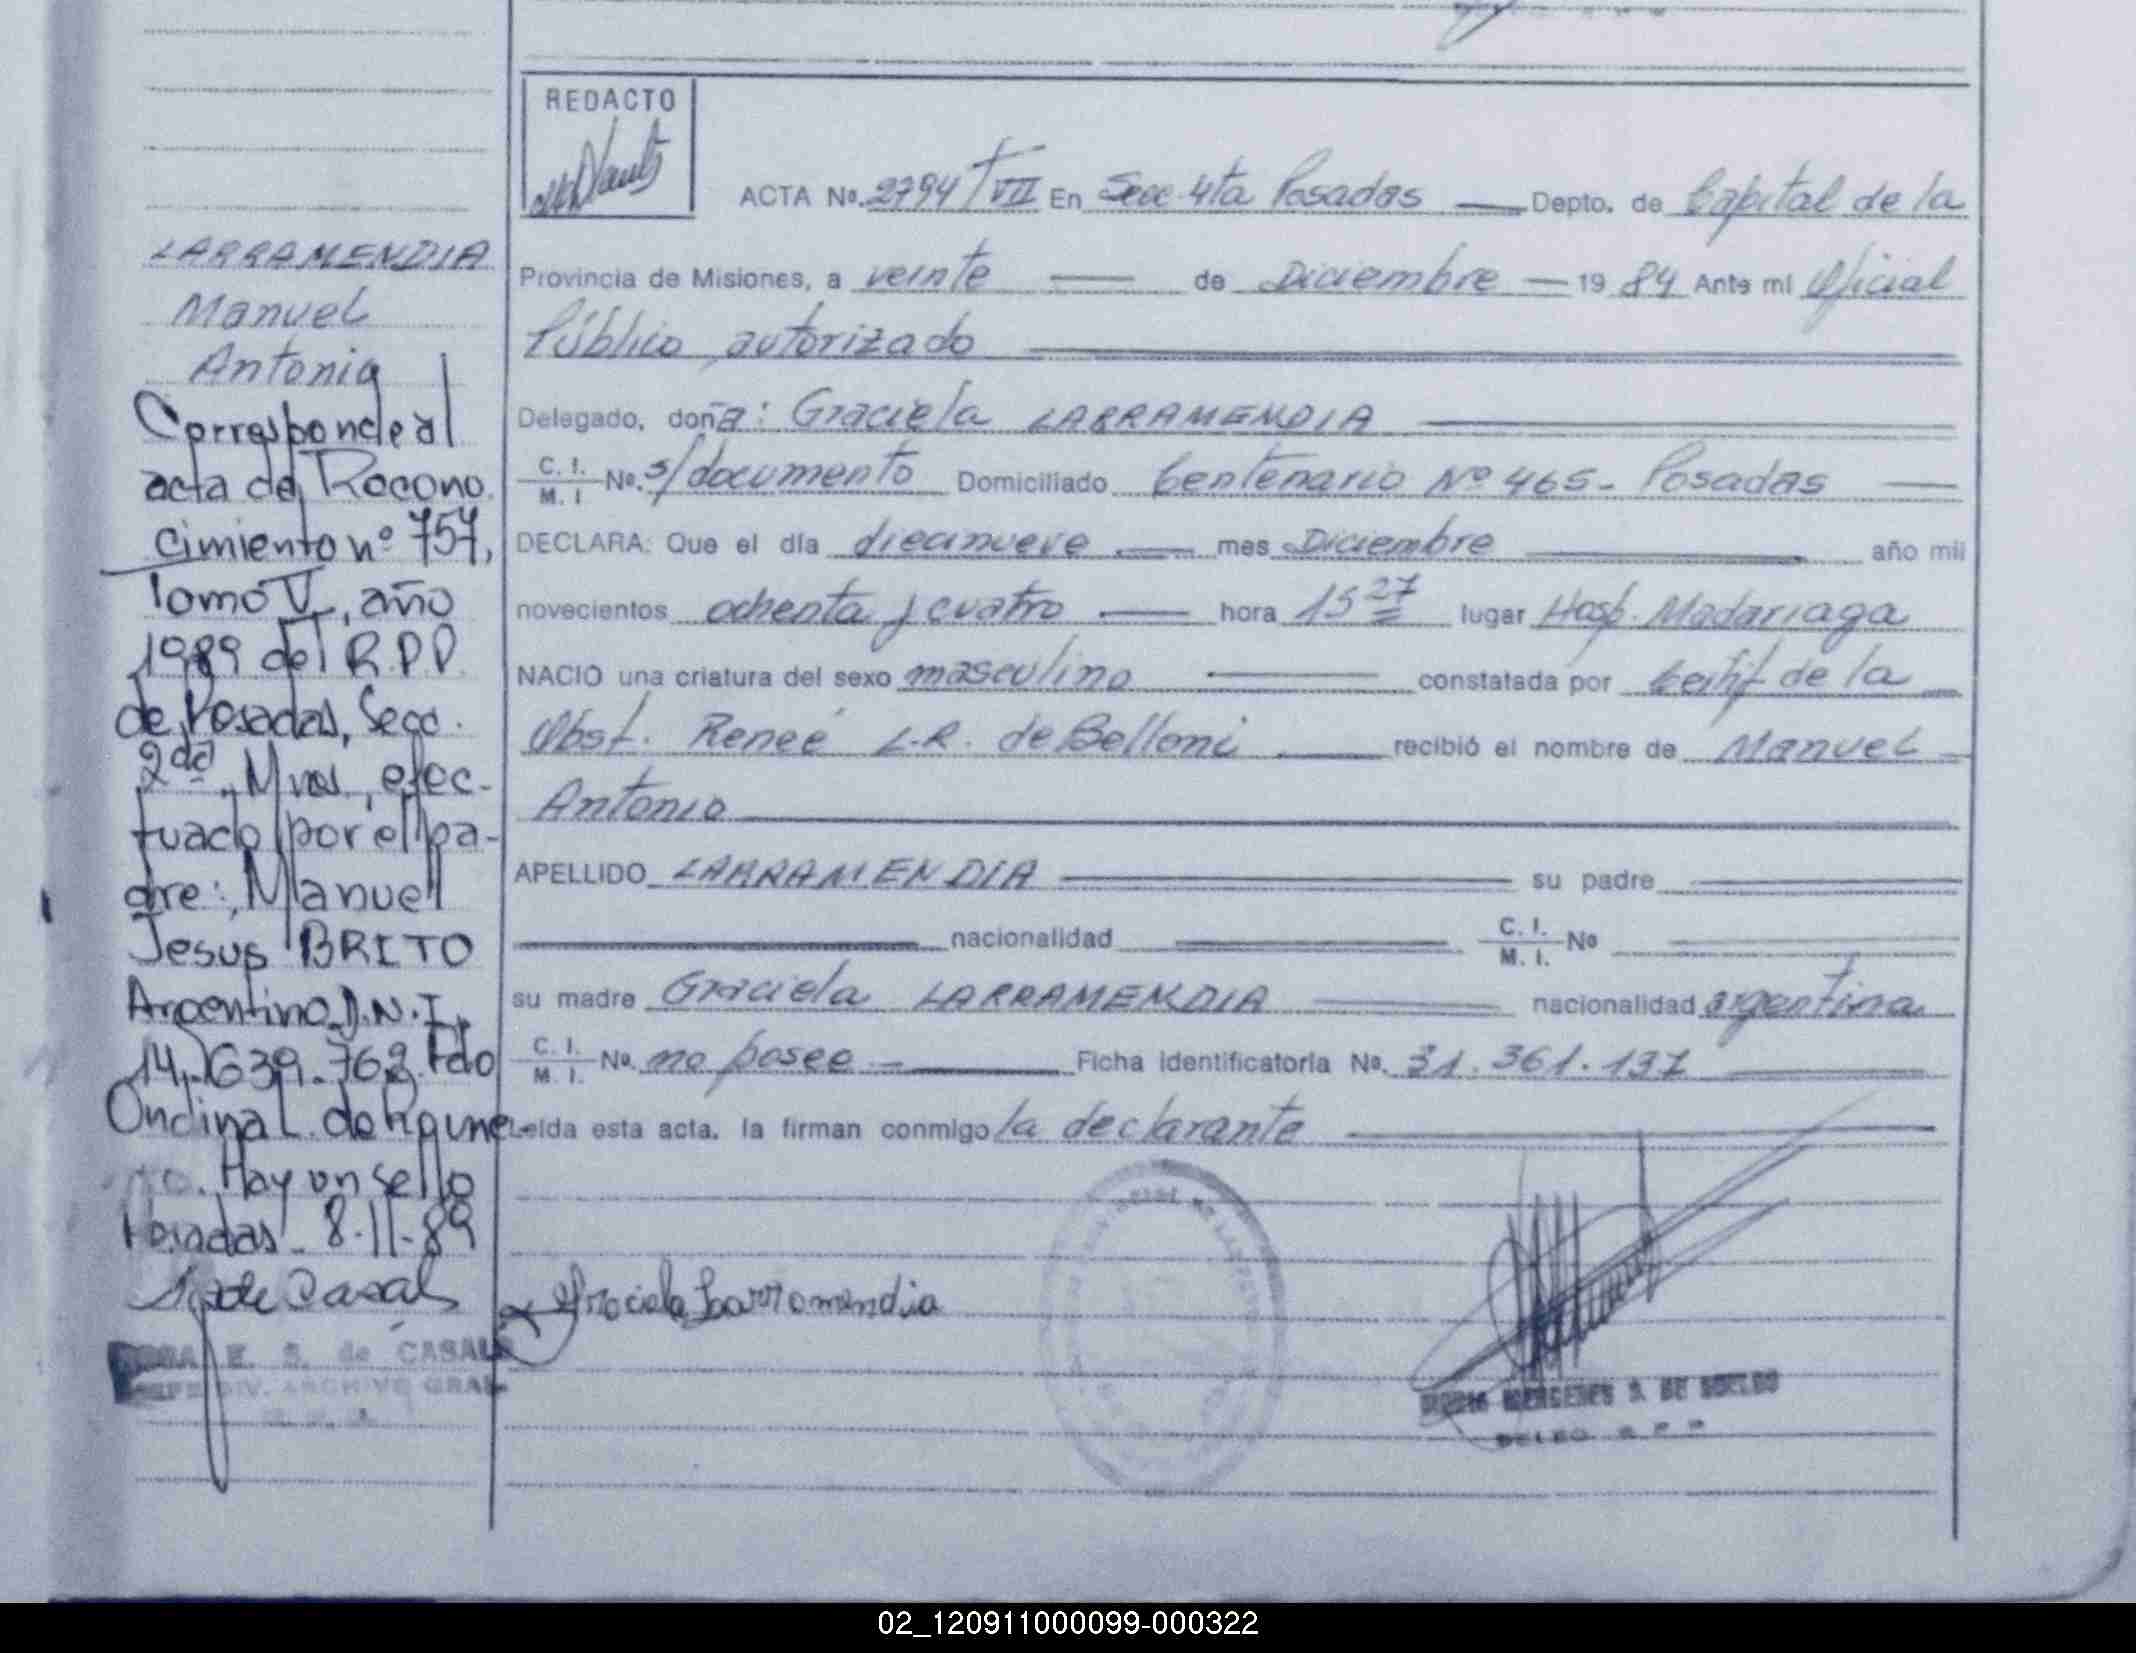 LARRAMENDIA
Manuel
Antonio
Corresponde al
acta de Recono
cimiento nº 757,
Tomo V, año
1989 del R.P.P.
de Posadas, Secc.
2da, Mnes, efec-
tuado por el pa-
dre: Manuel
Jesus BRITO
Argentino D.N.I.
14.639.762. Fdo
Hay un sello
Posadas 8-11-89
E. S. de CASALS
DIV. ARCHIVO GRAL
REDACTO
ACTA No. 2794 T VII En Secc 4ta Posadas Depto. de Capital de la
Provincia de Misiones, a veinte de Diciembre 19 84 Ante mi Oficial
Público autorizado
Delegado, doña: Graciela LARRAMENDIA
C. I. M. I No. s/documento Domiciliado Centenario Nº 465- Posadas
DECLARA: Que el día diecinueve mes Diciembre año mil
novecientos ochenta y cuatro hora 15 27 lugar Hosp. Madariaga
NACIO una criatura del sexo masculino constatada por Certif de la
Obst. Reneé L.R. de Belloni recibió el nombre de Manuel
Antonio
APELLIDO LARRAMENDIA su padre
nacionalidad C. I. M. I. No
su madre Graciela LARRAMENDIA nacionalidad argentina
C. I. M. I. No. no posee Ficha identificatoria No. 31.361.137
Leida esta acta, la firman conmigo la declarante
Graciela Larramendia
S. DE
DELEG. R P P
02_120911000099-000322